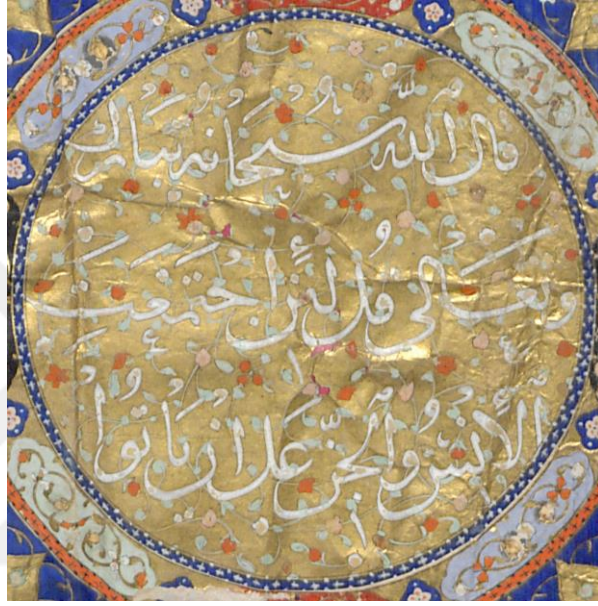 قال الله سبحانه تبارك
وتعالى قل لئن اجتمعت
الإنس والجن على أن يأتوا